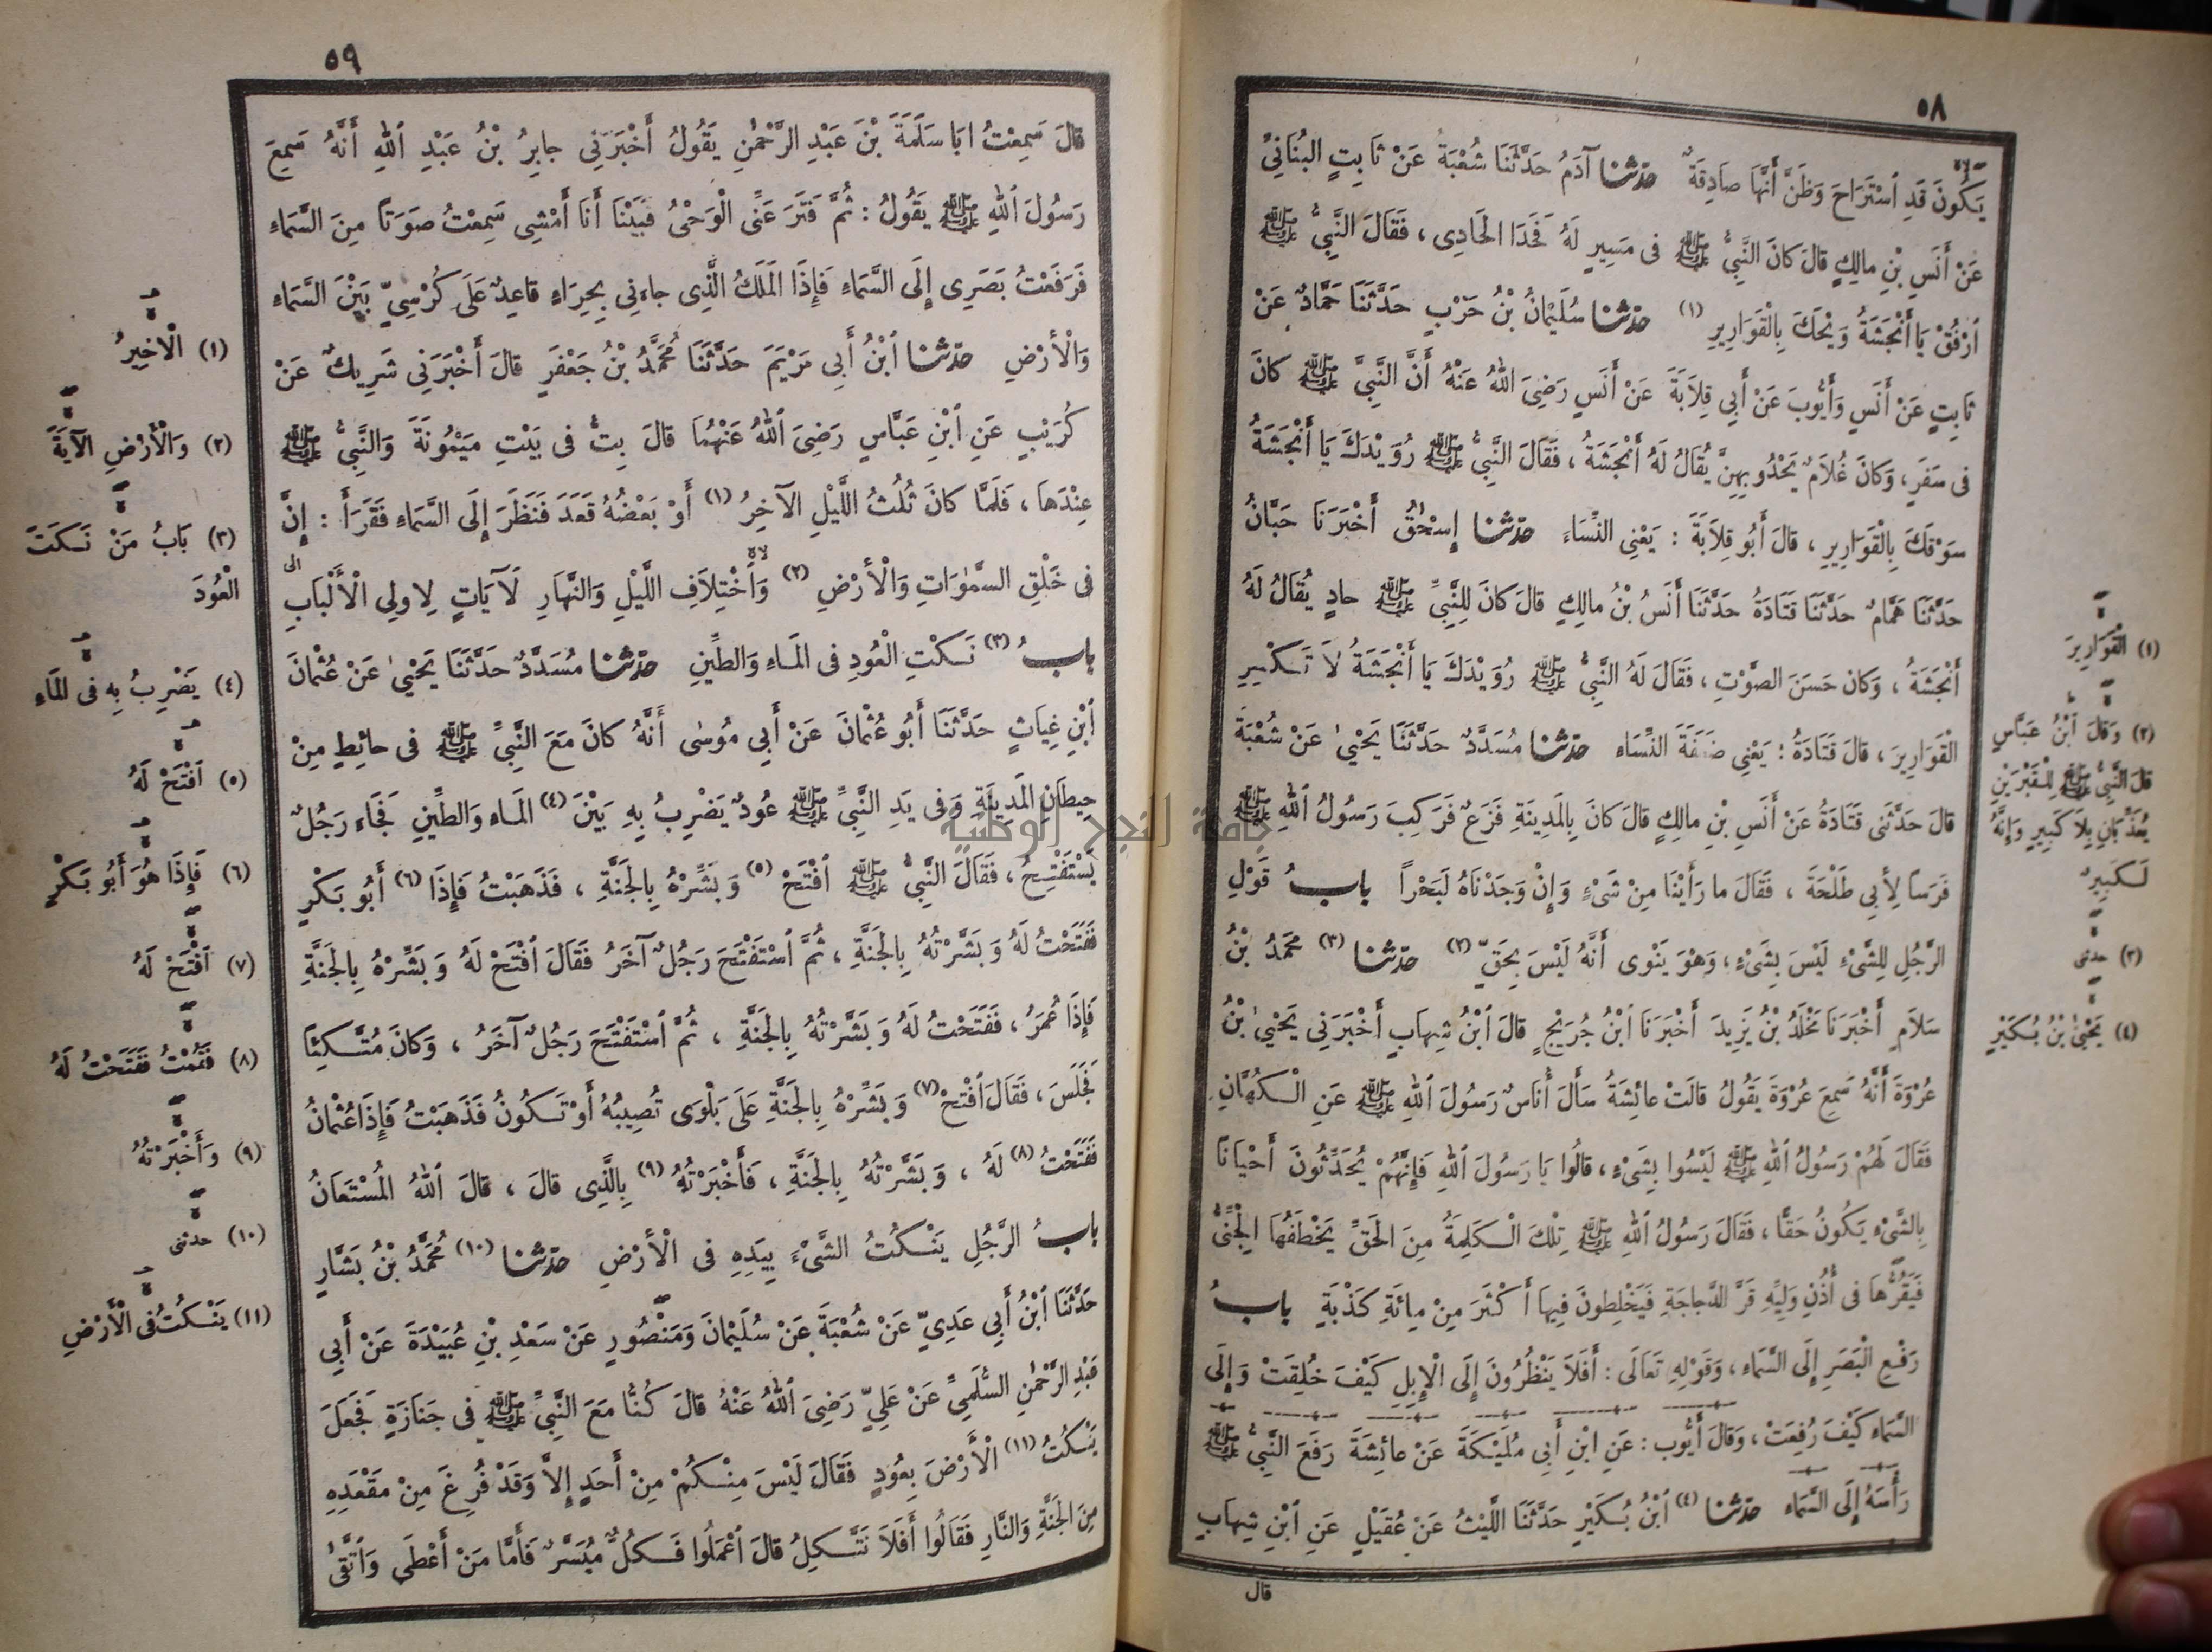 ٥٨
يَكُونَ قَدِ ٱسْتَرَاحَ وَظَنَّ أَنَّهَا صَادِقَةٌ حدّثنا آدَمُ حَدَّثَنَا شُعْبَةُ عَنْ ثَابِتٍ الْبُنَانِيِّ
عَنْ أَنَسِ بْنِ مالِكٍ قالَ كانَ النَّبِيُّ ﷺ فى مَسِيرٍ لَهُ فَحَدَا الْحَادِى ، فَقَالَ النَّبِيُّ ﷺ
ٱرْفُقْ يَا أَنْجَشَةُ وَيْحَكَ بِالْقَوَارِيرِ (١) حدّثنا سُلَيْمَانُ بْنُ حَرْبٍ حَدَّثَنَا حَمَّادٌ عَنْ
ثَابِتٍ عَنْ أَنَسٍ وَأَيُّوبَ عَنْ أَبِي قِلاَبَةَ عَنْ أَنَسٍ رَضِيَ اللهُ عَنْهُ أَنَّ النَّبِيَّ ﷺ كانَ
فى سَفَرٍ ، وَكانَ غُلاَمٌ يَحْدُو بِهِنَّ يُقَالُ لَهُ أَنْجَشَةُ ، فَقَالَ النَّبِيُّ ﷺ رُوَيْدَكَ يَا أَنْجَشَةُ
سَوْقَكَ بِالْقَوَارِيرِ ، قالَ أَبُو قِلاَبَةَ : يَعْنِي النِّسَاءَ حدّثنا إِسْحٰقُ أَخْبَرَنَا حَبَّانُ
حَدَّثَنَا هَمَّامٌ حَدَّثَنَا قَتَادَةُ حَدَّثَنَا أَنَسُ بْنُ مالِكٍ قالَ كانَ لِلنَّبِيِّ ﷺ حادٍ يُقَالُ لَهُ
أَنْجَشَةُ ، وَكانَ حَسَنَ الصَّوْتِ ، فَقَالَ لَهُ النَّبِيُّ ﷺ رُوَيْدَكَ يَا أَنْجَشَةُ لاَ تَكْسِرِ
الْقَوَارِيرَ ، قالَ قَتَادَةُ : يَعْنِي ضَعَفَةَ النِّسَاءِ حدّثنا مُسَدَّدٌ حَدَّثَنَا يَحْيىٰ عَنْ شُعْبَةَ
قالَ حَدَّثَنِي قَتَادَةُ عَنْ أَنَسِ بْنِ مالِكٍ قالَ كانَ بِالْمَدِينَةِ فَزَعٌ فَرَكِبَ رَسُولُ اللهِ ﷺ
فَرَسًا لِأَبِي طَلْحَةَ ، فَقَالَ ما رَأَيْنَا مِنْ شَىْءٍ وَإِنْ وَجَدْنَاهُ لَبَحْرًا باب قَوْلِ
الرَّجُلِ لِلشَّىْءِ لَيْسَ بِشَىْءٍ ، وَهوَ يَنْوِى أَنَّهُ لَيْسَ بِحَقٍّ (٢) حدّثنا (٣) مُحَمَّدُ بْنُ
سَلاَمٍ أَخْبَرَنَا مَخْلَدُ بْنُ يَزِيدَ أَخْبَرَنَا ٱبْنُ جُرَيْجٍ قالَ ٱبْنُ شِهَابٍ أَخْبَرَنِي يَحْيىٰ بْنُ
عُرْوَةَ أَنَّهُ سَمِعَ عُرْوَةَ يَقُولُ قالَتْ عائِشَةُ سَأَلَ أُنَاسٌ رَسُولَ ٱللهِ ﷺ عَنِ الْكُهَّانِ
فَقَالَ لَهُمْ رَسُولُ ٱللهِ ﷺ لَيْسُوا بِشَىْءٍ ، قالُوا يَا رَسُولَ ٱللهِ فَإِنَّهُمْ يُحَدِّثُونَ أَحْيَانًا
بِالشَّىْءِ يَكُونُ حَقًّا ، فَقَالَ رَسُولُ ٱللهِ ﷺ تِلْكَ الْكَلِمَةُ مِنَ الْحَقِّ يَخْطَفُهَا الْجِنِّىُّ
فَيَقُرُّهَا فى أُذُنِ وَلِيِّهِ قَرَّ الدَّجَاجَةِ فَيَخْلِطُونَ فِيهَا أَكْثَرَ مِنْ مِائَةِ كَذْبَةٍ باب
رَفْعِ الْبَصَرِ إِلَى السَّمَاءِ ، وَقَوْلِهِ تَعَالَى : أَفَلاَ يَنْظُرُونَ إِلَى الْإِبِلِ كَيْفَ خُلِقَتْ وَإِلَى
السَّمَاءِ كَيْفَ رُفِعَتْ ، وَقالَ أَيُّوب : عَنِ ابْنِ أَبِي مُلَيْكَةَ عَنْ عائِشَةَ رَفَعَ النَّبِيُّ ﷺ
رَأْسَهُ إِلَى السَّمَاءِ حدّثنا (٤) ٱبْنُ بُكَيْرٍ حَدَّثَنَا اللَّيْثُ عَنْ عُقَيْلٍ عَنِ ٱبْنِ شِهَابٍ
قال
(١) الْقَوَارِيرَ
(٢) وَقَالَ ٱبْنُ عَبَّاسٍ
قالَ النَّبِيُّ ﷺ لِلْقَبْرَيْنِ
يُعَذَّبَانِ بِلاَ كَبِيرٍ وَإِنَّهُ
لَكَبِيرٌ
(٣) حدثنى
(٤) يَحْيىٰ بْنُ بُكَيْرٍ
٥٩
قالَ سَمِعْتُ ابَا سَلَمَةَ بْنَ عَبْدِ الرَّحْمٰنِ يَقُولُ أَخْبَرَنِي جابِرُ بْنُ عَبْدِ ٱللهِ أَنَّهُ سَمِعَ
رَسُولَ ٱللهِ ﷺ يَقُولُ : ثُمَّ فَتَرَ عَنِّى الْوَحْىُ فَبَيْنَا أَنَا أَمْشِى سَمِعْتُ صَوْتًا مِنَ السَّمَاءِ
فَرَفَعْتُ بَصَرِى إِلَى السَّمَاءِ فَإِذَا الْمَلَكُ الَّذِى جاءَنِي بِحِرَاءٍ قاعِدٌ عَلَى كُرْسِيٍّ بَيْنَ السَّمَاءِ
وَالْأَرْضِ حدّثنا ٱبْنُ أَبِي مَرْيَمَ حَدَّثَنَا مُحَمَّدُ بْنُ جَعْفَرٍ قالَ أَخْبَرَنِي شَرِيكٌ عَنْ
كُرَيْبٍ عَنِ ٱبْنِ عَبَّاسٍ رَضِيَ ٱللهُ عَنْهُمَا قالَ بِتُّ فى بَيْتِ مَيْمُونَةَ وَالنَّبِيُّ ﷺ
عِنْدَهَا ، فَلَمَّا كانَ ثُلُثُ اللَّيْلِ الآخِرُ (١) أَوْ بَعْضُهُ قَعَدَ فَنَظَرَ إِلَى السَّمَاءِ فَقَرَأَ : إِنَّ
فى خَلْقِ السَّمٰوَاتِ وَالْأَرْضِ (٢) وَٱخْتِلاَفِ اللَّيْلِ وَالنَّهَارِ لَآيَاتٍ لِاولِي الْأَلْبَابِ
باب (٣) نَكْتِ الْعُودِ فى الْمَاءِ وَالطِّينِ حدّثنا مُسَدَّدٌ حَدَّثَنَا يَحْيىٰ عَنْ عُثْمَانَ
ٱبْنِ غِيَاثٍ حَدَّثَنَا أَبُو عُثْمَانَ عَنْ أَبِي مُوسٰى أَنَّهُ كانَ مَعَ النَّبِيِّ ﷺ فى حائِطٍ مِنْ
حِيطَانِ الْمَدِينَةِ وَفى يَدِ النَّبِيِّ ﷺ عُودٌ يَضْرِبُ بِهِ بَيْنَ (٤) الْمَاءِ وَالطِّينِ فَجَاءَ رَجُلٌ
يَسْتَفْتِحُ ، فَقَالَ النَّبِيُّ ﷺ ٱفْتَحْ (٥) وَبَشِّرْهُ بِالْجَنَّةِ ، فَذَهَبْتُ فَإِذَا (٦) أَبُو بَكْرٍ
فَفَتَحْتُ لَهُ وَبَشَّرْتُهُ بِالْجَنَّةِ ، ثُمَّ ٱسْتَفْتَحَ رَجُلٌ آخَرُ فَقَالَ ٱفْتَحْ لَهُ وَبَشِّرْهُ بِالْجَنَّةِ
فَإِذَا عُمَرُ ، فَفَتَحْتُ لَهُ وَبَشَّرْتُهُ بِالْجَنَّةِ ، ثُمَّ ٱسْتَفْتَحَ رَجُلٌ آخَرُ ، وَكانَ مُتَّكِئًا
فَجَلَسَ ، فَقَالَ ٱفْتَحْ (٧) وَبَشِّرْهُ بِالْجَنَّةِ عَلَى بَلْوَى تُصِيبُهُ أَوْ تَكُونُ فَذَهَبْتُ فَإِذَا عُثْمَانُ
فَفَتَحْتُ (٨) لَهُ ، وَبَشَّرْتُهُ بِالْجَنَّةِ ، فَأَخْبَرْتُهُ (٩) بِالَّذِى قالَ ، قالَ ٱللهُ الْمُسْتَعَانُ
باب الرَّجُلِ يَنْكُتُ الشَّىْءَ بِيَدِهِ فى الْأَرْضِ حدّثنا (١٠) مُحَمَّدُ بْنُ بَشَّارٍ
حَدَّثَنَا ٱبْنُ أَبِي عَدِيٍّ عَنْ شُعْبَةَ عَنْ سُلَيْمَانَ وَمَنْصُورٍ عَنْ سَعْدِ بْنِ عُبَيْدَةَ عَنْ أَبِي
عَبْدِ الرَّحْمٰنِ السُّلَمِيِّ عَنْ عَلِيٍّ رَضِيَ ٱللهُ عَنْهُ قالَ كُنَّا مَعَ النَّبِيِّ ﷺ فى جَنَازَةٍ فَجَعَلَ
يَنْكُتُ (١١) الْأَرْضَ بِعُودٍ فَقَالَ لَيْسَ مِنْكُمْ مِنْ أَحَدٍ إِلاَّ وَقَدْ فُرِغَ مِنْ مَقْعَدِهِ
مِنَ الْجَنَّةِ وَالنَّارِ فَقَالُوا أَفَلاَ نَتَّكِلُ قالَ ٱعْمَلُوا فَكُلٌّ مُيَسَّرٌ فَأَمَّا مَنْ أَعْطَى وَٱتَّقىٰ
(١) الْاخِيرُ
(٢) وَالْأَرْضِ الآيَةَ
(٣) بَابُ مَنْ نَكَتَ
الْعُودَ
(٤) يَضْرِبُ بِهِ فى الْمَاءِ
(٥) ٱفْتَحْ لَهُ
(٦) فَإِذَا هُوَ أَبُو بَكْرٍ
(٧) ٱفْتَحْ لَهُ
(٨) فَقُمْتُ فَفَتَحْتُ لَهُ
(٩) وَأَخْبَرْتُهُ
(١٠) حدثنى
(١١) يَنْكُتُ فى الْأَرْضِ
جامعة النجاح الوطنية